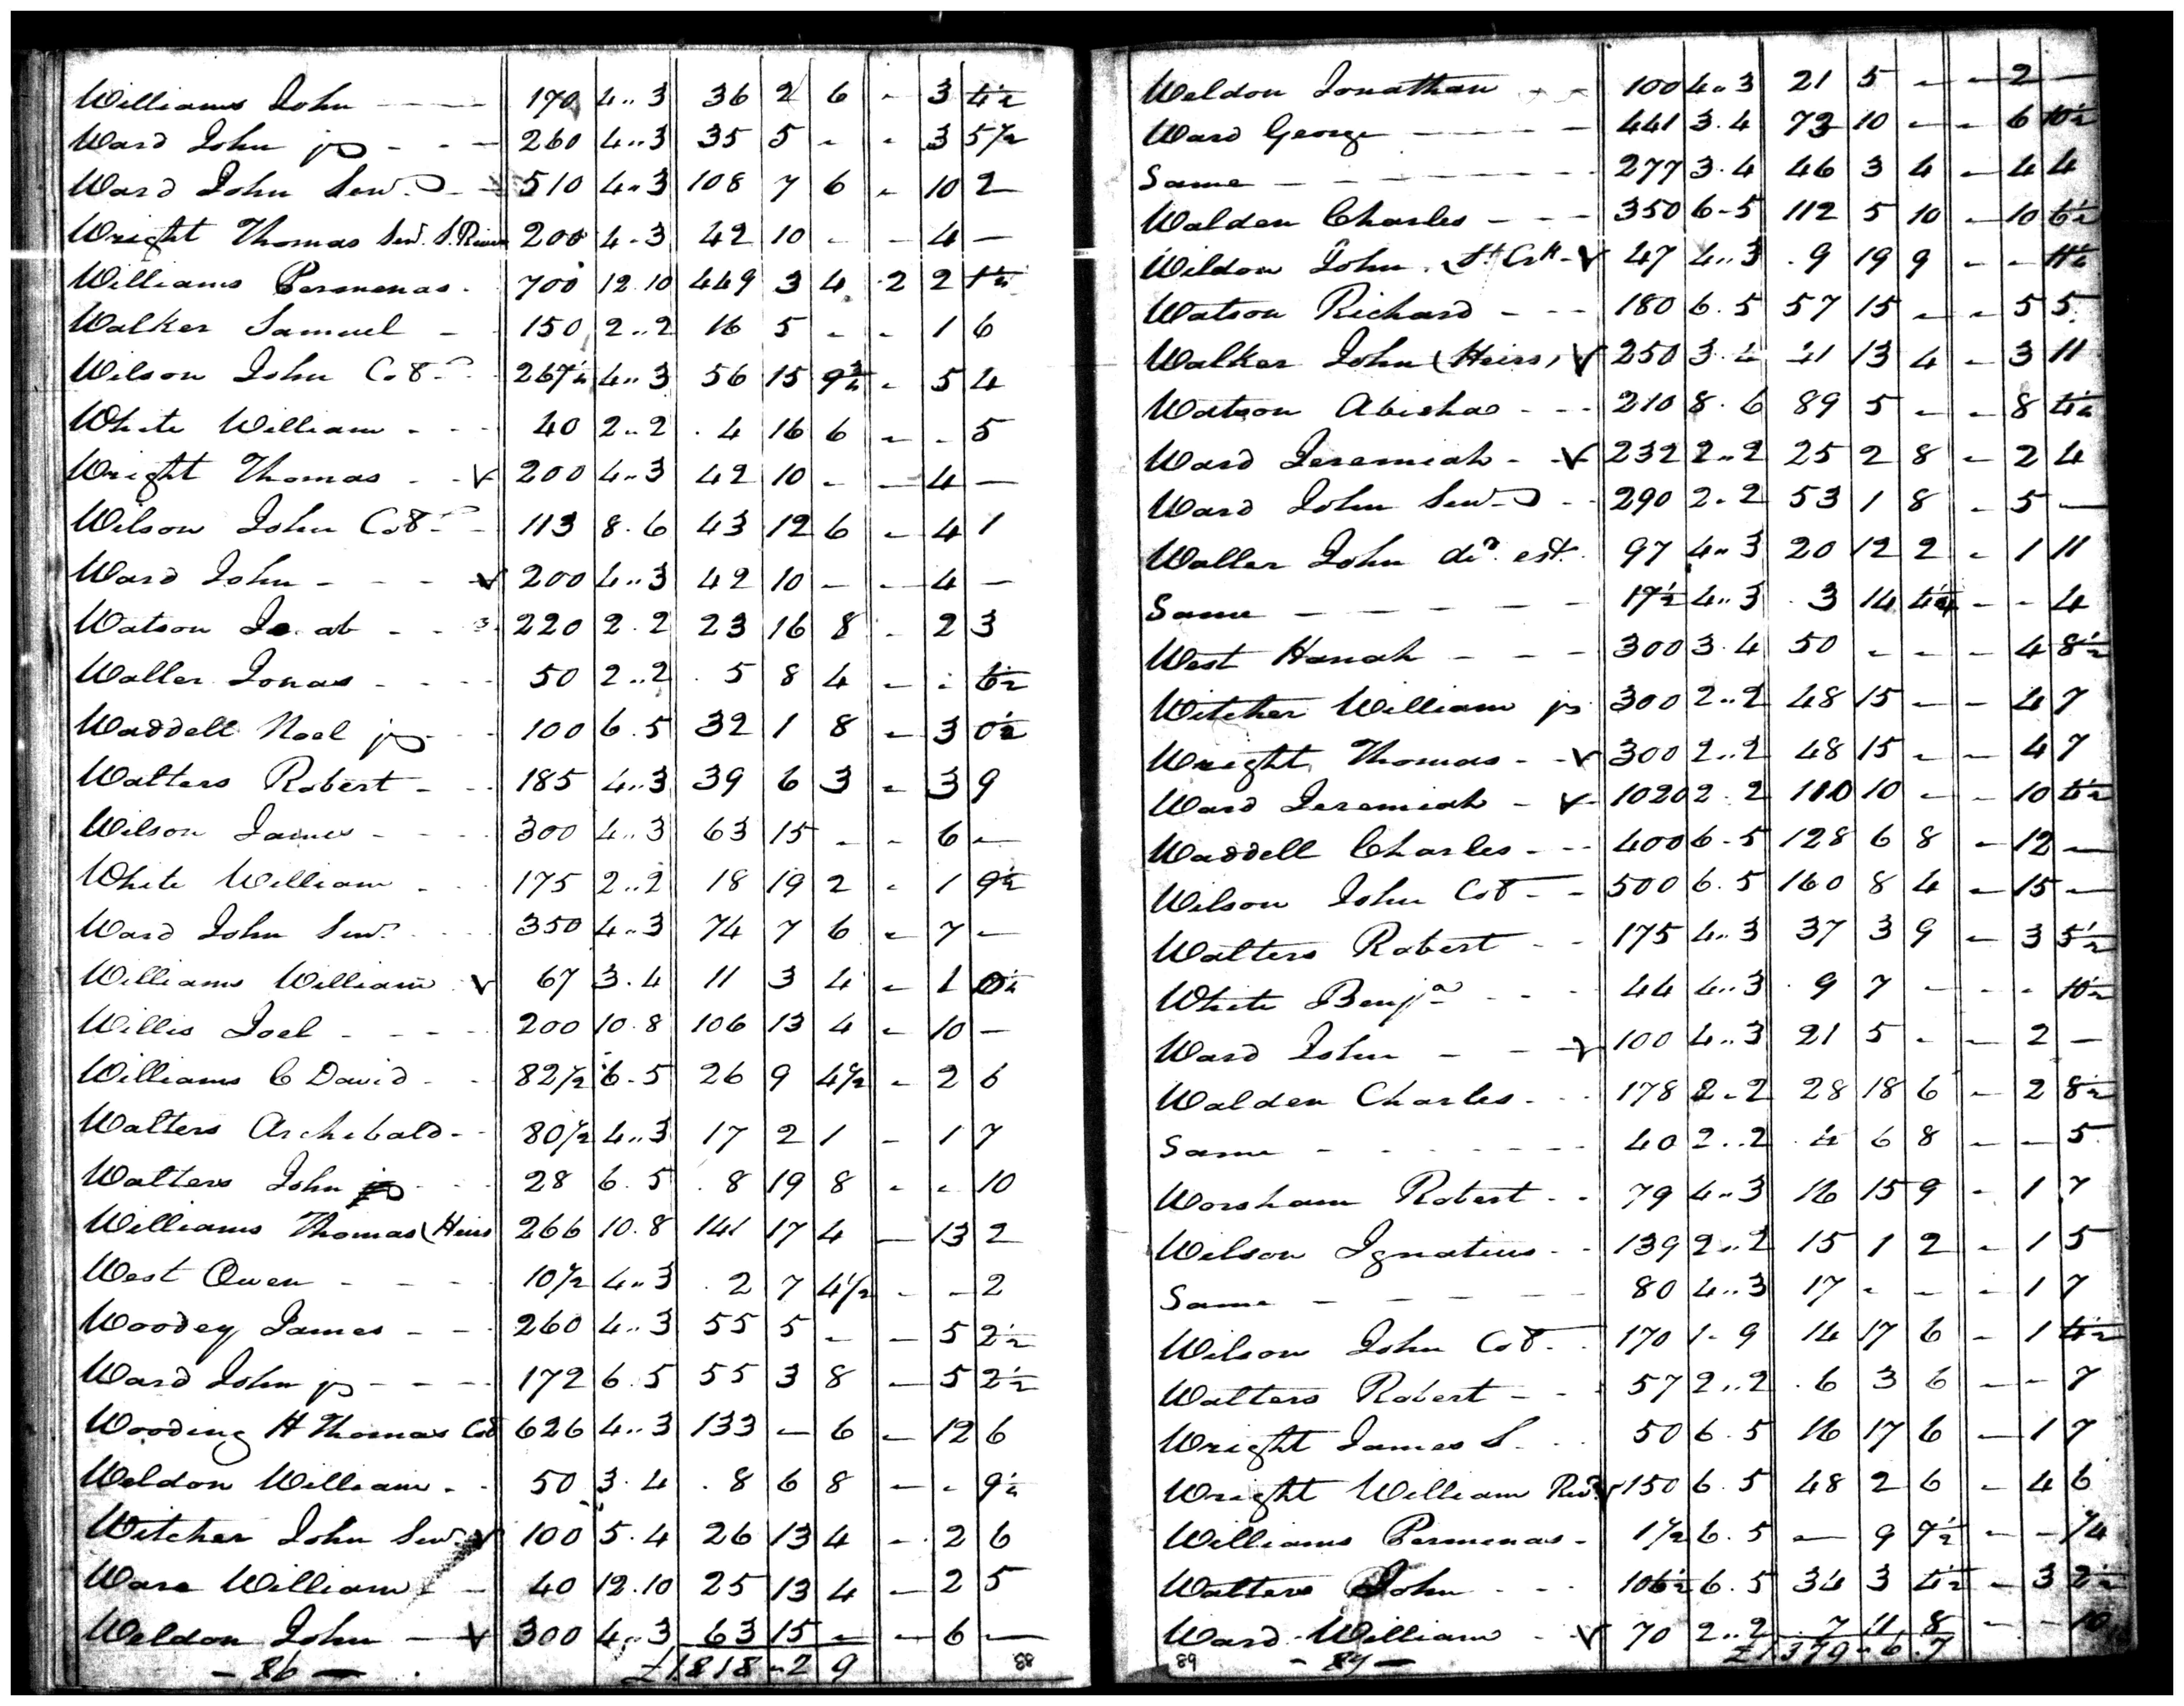 Williams John - - - 170 4..3 36 2 6 - 3 4½
Ward John jr - - - 260 4..3 35 5 - - 3 5½
Ward John Senr. - - 510 4..3 108 7 6 - 10 2
Wright Thomas Senr. S. River 200 4..3 42 10 - - 4 -
Williams Permenas - 700 12.10 449 3 4 2 2 1½
Walker Samuel - 150 2..2 16 5 - - 1 6
Wilson John Col. - 267¼ 4..3 56 15 9¾ - 5 4
White William - - - 40 2..2 4 16 6 - - 5
Wright Thomas - - v 200 4..3 42 10 - - 4 -
Wilson John Col. - 113 8.6 43 12 6 - 4 1
Ward John - - - v 200 4..3 42 10 - - 4 -
Watson - - 220 2.2 23 16 8 - 2 3
Waller Jonas - - - 50 2..2 5 8 4 - - 6½
Waddell Noel jr - - 100 6.5 32 1 8 - 3 0½
Walters Robert - - 185 4..3 39 6 3 - 3 9
Wilson James - - - 300 4..3 63 15 - - 6 -
White William - - - 175 2..2 18 19 2 - 1 9½
Ward John Senr. - - 350 4..3 74 7 6 - 7 -
Williams William v 67 3.4 11 3 4 - 1 0½
Willis Joel - - - - 200 10.8 106 13 4 - 10 -
Williams C David - - 82½ 6.5 26 9 4½ - 2 6
Walters Archibald - - 80½ 4..3 17 2 1 - 1 7
Walters John - - - 28 6.5 8 19 8 - - 10
Williams Thomas (Heirs 266 10.8 141 17 4 - 13 2
West Owen - - - 10½ 4..3 2 7 4½ - - 2
Woodey James - - 260 4..3 55 5 - - 5 2½
Ward John jr - - - 172 6.5 55 3 8 - 5 2½
Wooding H Thomas Col 626 4..3 133 - 6 - 12 6
Weldon William - - 50 3.4 8 6 8 - - 9½
Witcher John Senr. v 100 5.4 26 13 4 - 2 6
Ware William - - 40 12.10 25 13 4 - 2 5
Weldon John - v 300 4..3 63 15 - - 6 -
- 86 - £1818 - 2 9 88
Weldon Jonathan - - 100 4..3 21 5 - - 2 -
Ward George - - - - 441 3.4 73 10 - - 6 10½
Same - - - - - - 277 3.4 46 3 4 - 4 4
Walden Charles - - - 350 6-5 112 5 10 - 10 6½
Weldon John - v 47 4..3 9 19 9 - - 11½
Watson Richard - - - 180 6.5 57 15 - - 5 5
Walker John (Heirs) v 250 3.4 41 13 4 - 3 11
Watson Abisha - - - 210 8.6 89 5 - - 8 4½
Ward Jeremiah - v 232 2..2 25 2 8 - 2 4
Ward John Senr. - - 290 2.2 53 1 8 - 5 -
Waller John decd. est. 97 4..3 20 12 2 - 1 11
Same - - - - - 17½ 4..3 3 14 4½ - - 4
West Hanah - - - 300 3.4 50 - - - 4 8½
Witcher William jr 300 2..2 48 15 - - 4 7
Wright Thomas - v 300 2..2 48 15 - - 4 7
Ward Jeremiah - v 1020 2.2 110 10 - - 10 4½
Waddell Charles - - 400 6-5 128 6 8 - 12 -
Wilson John Col. - - 500 6.5 160 8 4 - 15 -
Walters Robert - - 175 4..3 37 3 9 - 3 5½
White Benja. - - - 44 4..3 9 7 - - - 10½
Ward John - - v 100 4..3 21 5 - - 2 -
Walden Charles - - 178 2.2 28 18 6 - 2 8½
Same - - - - - - 40 2..2 4 6 8 - - 5
Worsham Robert - - 79 4..3 16 15 9 - 1 7
Wilson Ignatius - - 139 2..2 15 1 2 - 1 5
Same - - - - - 80 4..3 17 - - - 1 7
Wilson John Col. - - 170 1-9 14 17 6 - 1 4½
Walters Robert - - 57 2..2 6 3 6 - - 7
Wright James S. - - 50 6.5 16 17 6 - 1 7
Wright William Revd. v 150 6.5 48 2 6 - 4 6
Williams Permenas - 1½ 6.5 - 9 7½ - - ¼
Walters John - - - 106½ 6.5 34 3 4½ - 3 2½
Ward William - v 70 2..2 7 11 8 - - 10
89 - 87 - £1379 - 6.7